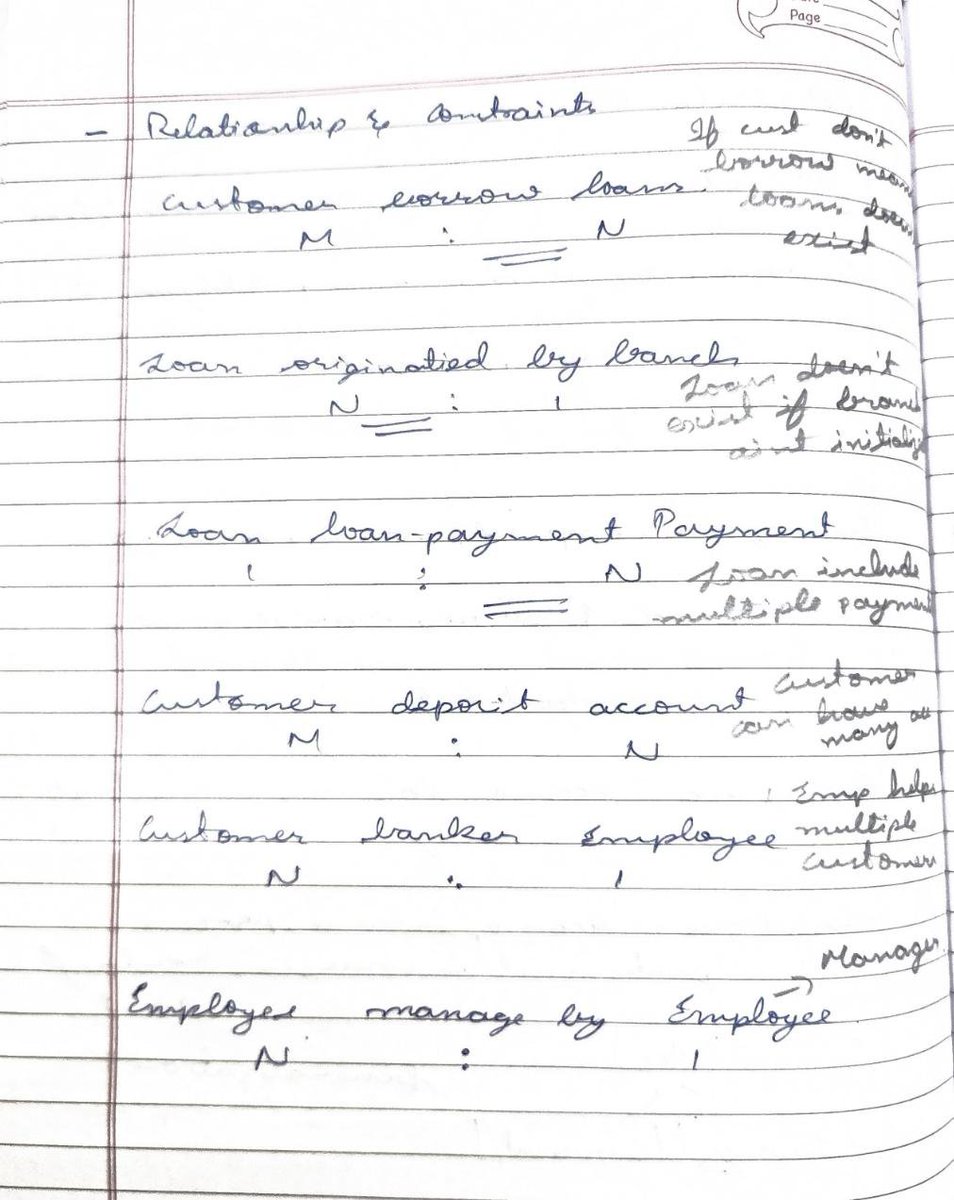 Page
- Relationship & constraints
If cust don't
borrow mean
customer borrow loans.
loans does
M : N
exist
Loan originatied by branch
Loan doesn't
N : 1
exist if branc
aint initializ
Loan loan-payment Payment
1 : N
Loan include
multiple paymen
Customer
Customer deposit account
can have
many acc
M : N
1 Emp help
Customer banker Employee
multiple
customers
N : 1
→ Manager
Employee manage by Employee
N : 1